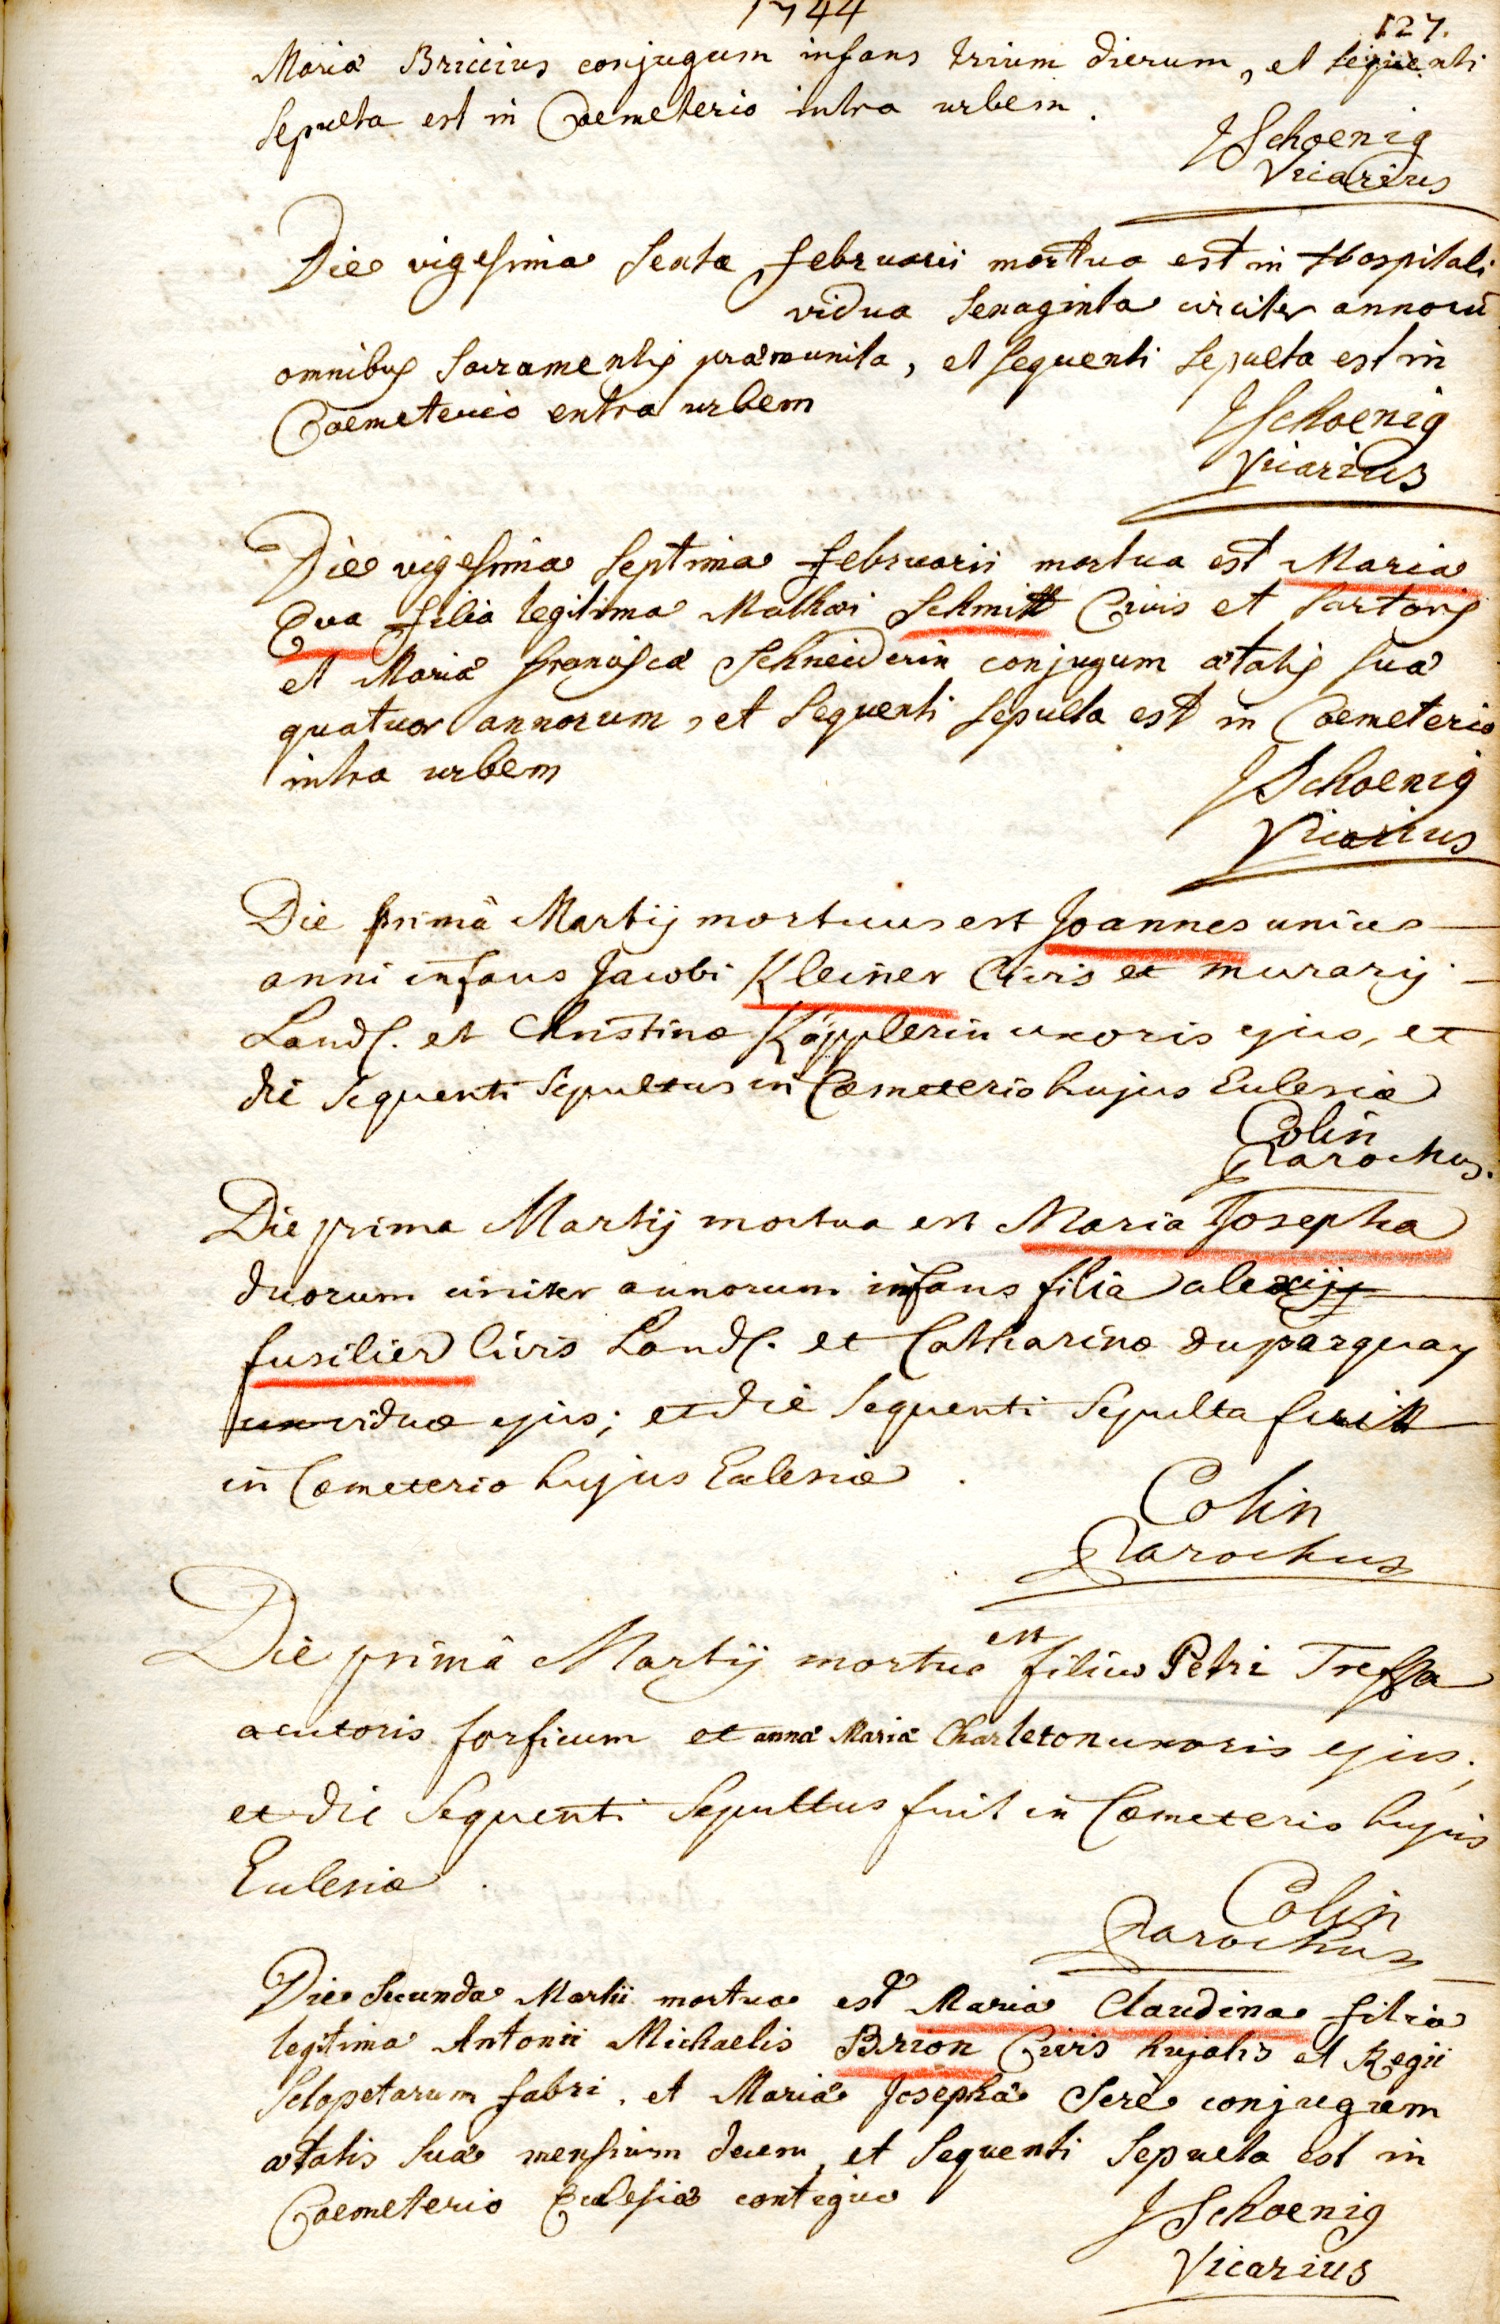 1744
127.
Mariæ Briccius conjugum infans trium dierum, et sequenti
sepulta est in Coemeterio intra urbem.
JSchoenig
Vicarius
Die vigesima sexta februarii mortua est in Hospitali
vidua sexaginta circiter annorū
omnibus sacramentis præmunita, et sequenti sepulta est in
Coemeterio entra urbem
JSchoenig
Vicarius
Die vigesima septima februarii mortua est Maria
Eva filia legitima Mathæi Schmitt Civis et sartoris
et Mariæ francisca Schneiderin conjugum ætatis suæ
quatuor annorum, et sequenti sepulta est in Coemeterio
intra urbem
JSchoenig
Vicarius
Die primâ Martij mortuus est Joannes unius
anni infans Jacobi Kleiner Civis et murarij
Land. et Christinæ Käpplerin uxoris ejus, et
die sequenti sepultus in Cœmeterio hujus Ecclesiæ
Colin
Parochus.
Die prima Martij mortua est Maria Josepha
duorum circiter annorum infans filia alexij
fusilier Civis Land. et Catharinæ duparquay
viduæ ejus; et die sequenti sepulta fuit
in Cœmeterio hujus Ecclesiæ.
Colin
Parochus
est
Die primâ Martij mortuus filius Petri Treffa
acutoris forficum et annæ Mariæ Charleton uxoris ejus,
et die sequenti sepultus fuit in Cœmeterio hujus
Ecclesiæ.
Colin
Parochus
Die secunda Martii mortua est Maria Claudina filia
legitima Antonii Michaelis Brion Civis hujatis et Regii
Sclopetarum fabri. et Mariæ Josephæ Serè conjugum
ætatis suæ mensium decem, et sequenti sepulta est in
Coemeterio Ecclesiæ contiguo
JSchoenig
Vicarius